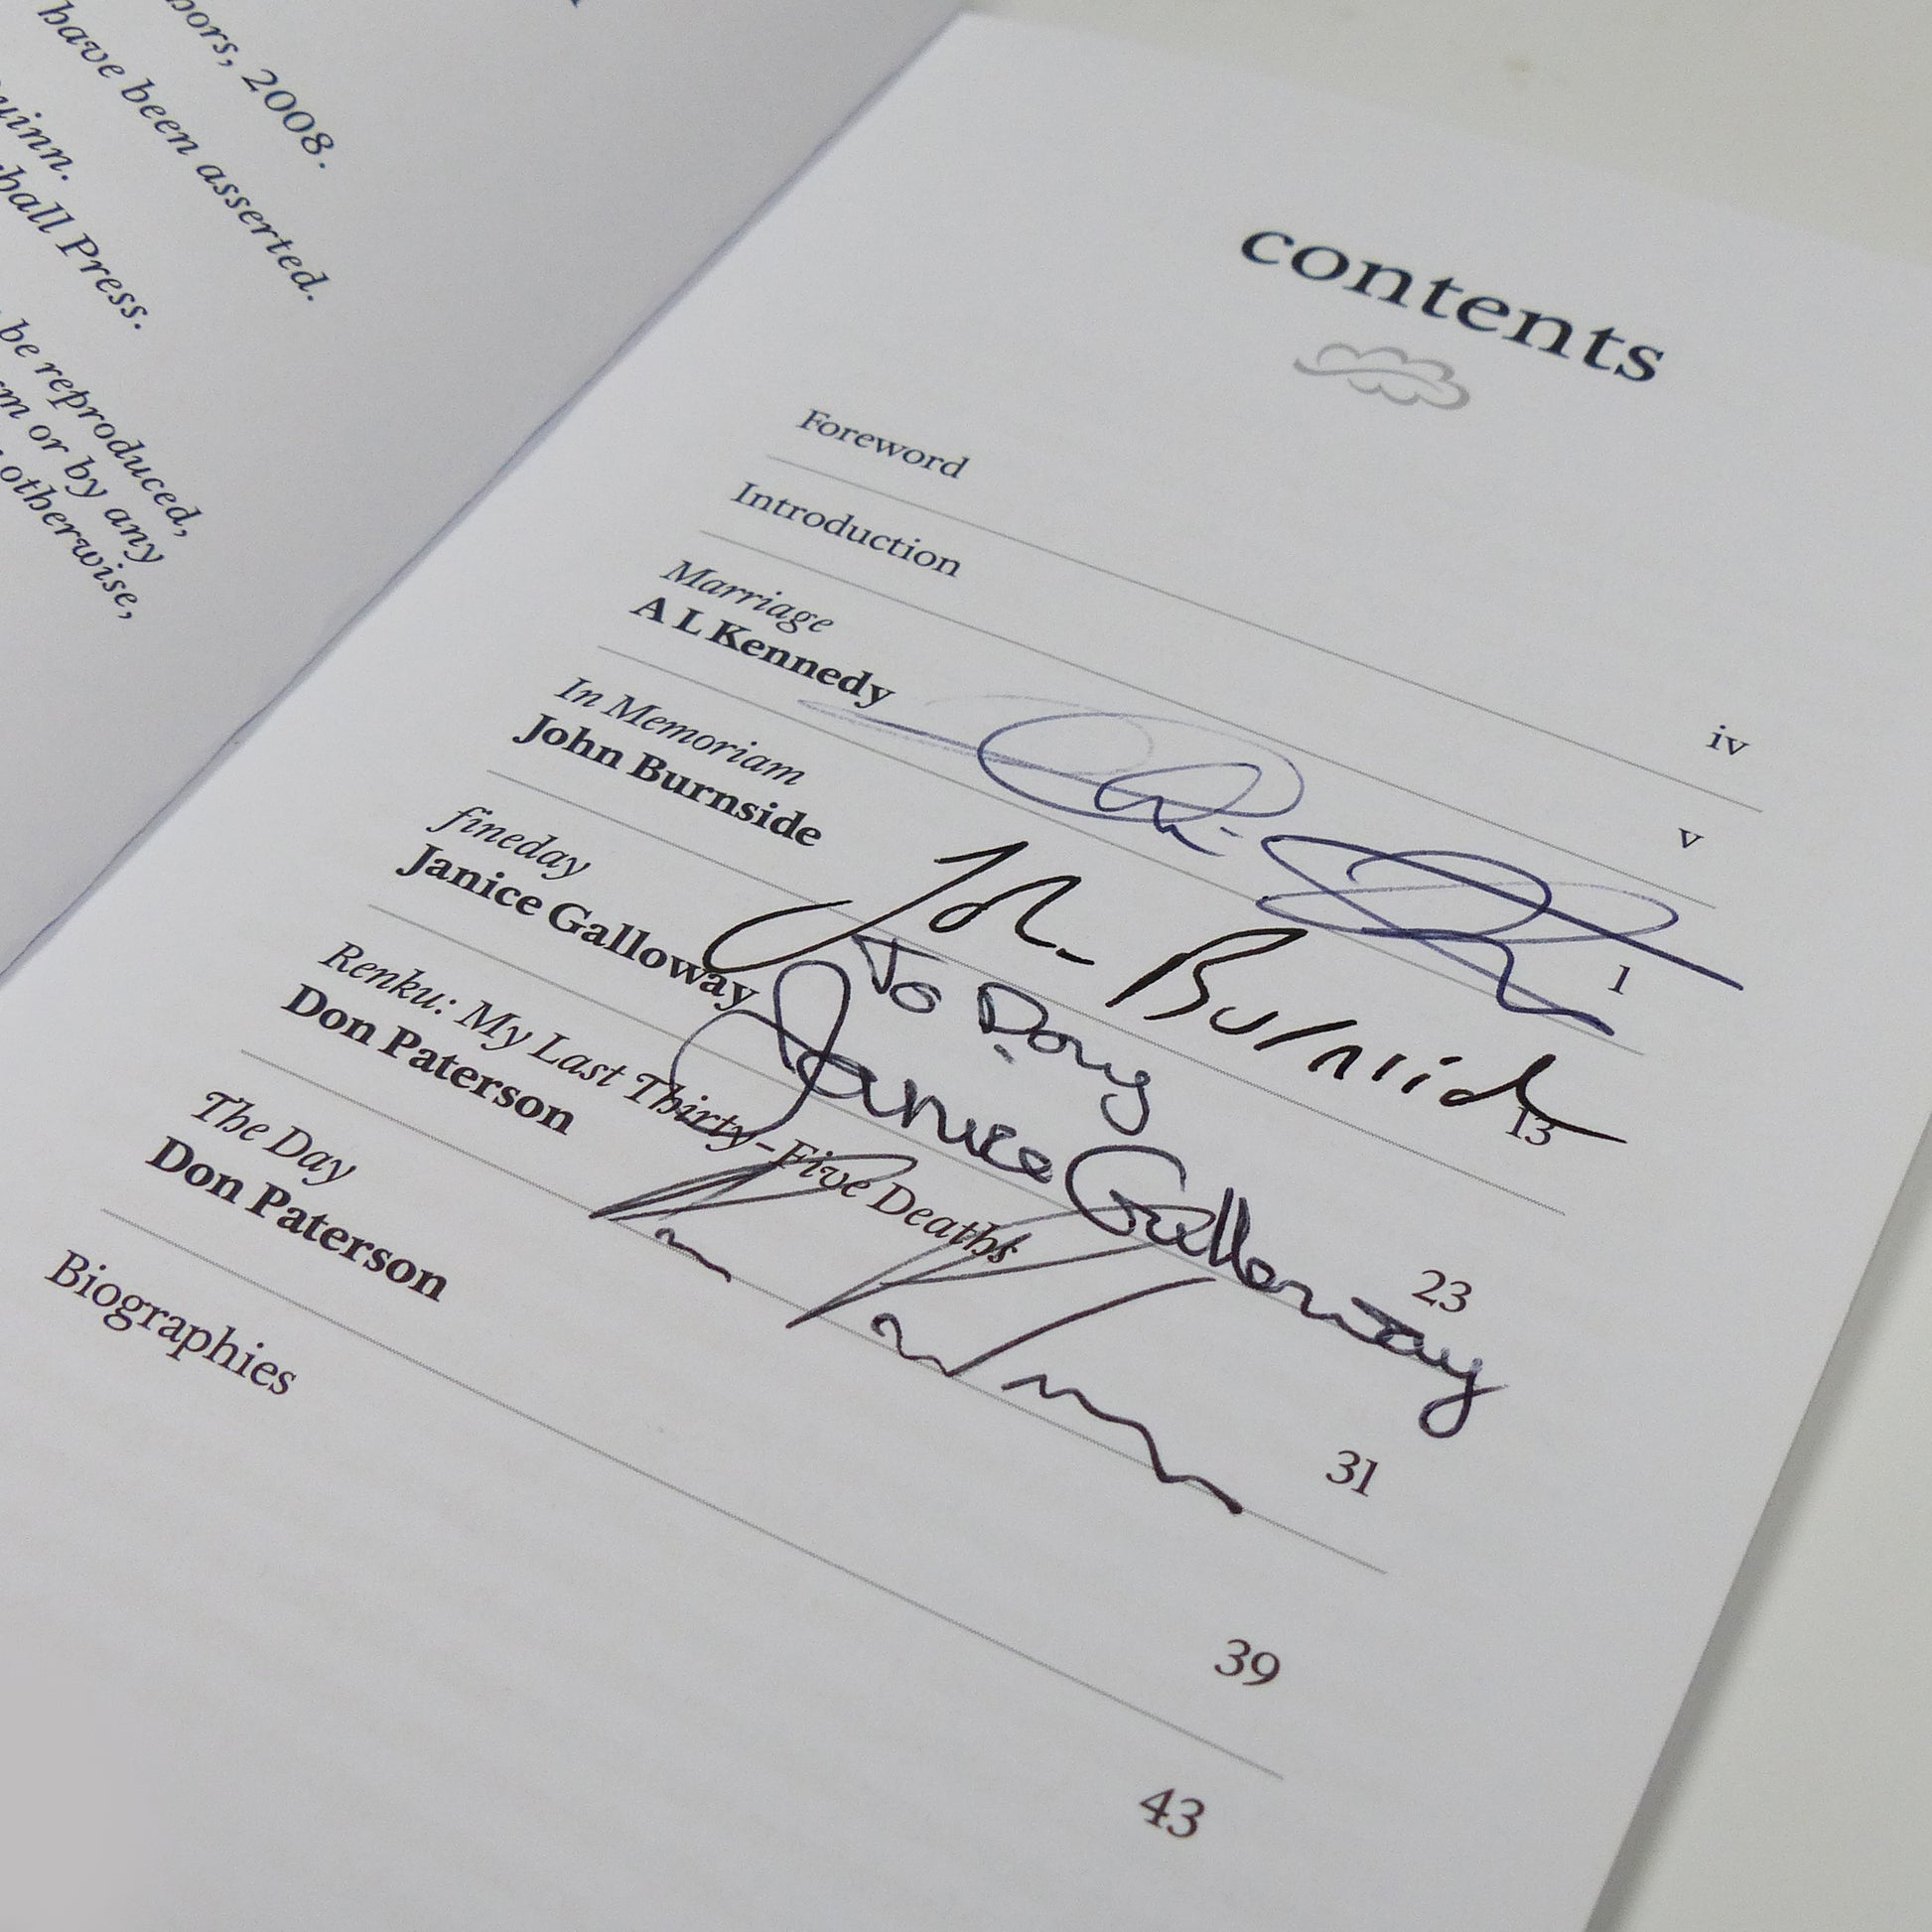 ors, 2008.
have been asserted.
uinn.
hall Press.
be reproduced,
or by any
otherwise,
contents
Foreword iv
Introduction v
Marriage
A L Kennedy 1
In Memoriam
John Burnside 13
John Burnside
fineday
Janice Galloway 23
To Doug
Janice Galloway
Renku: My Last Thirty-Five Deaths
Don Paterson 31
The Day
Don Paterson 39
Biographies 43